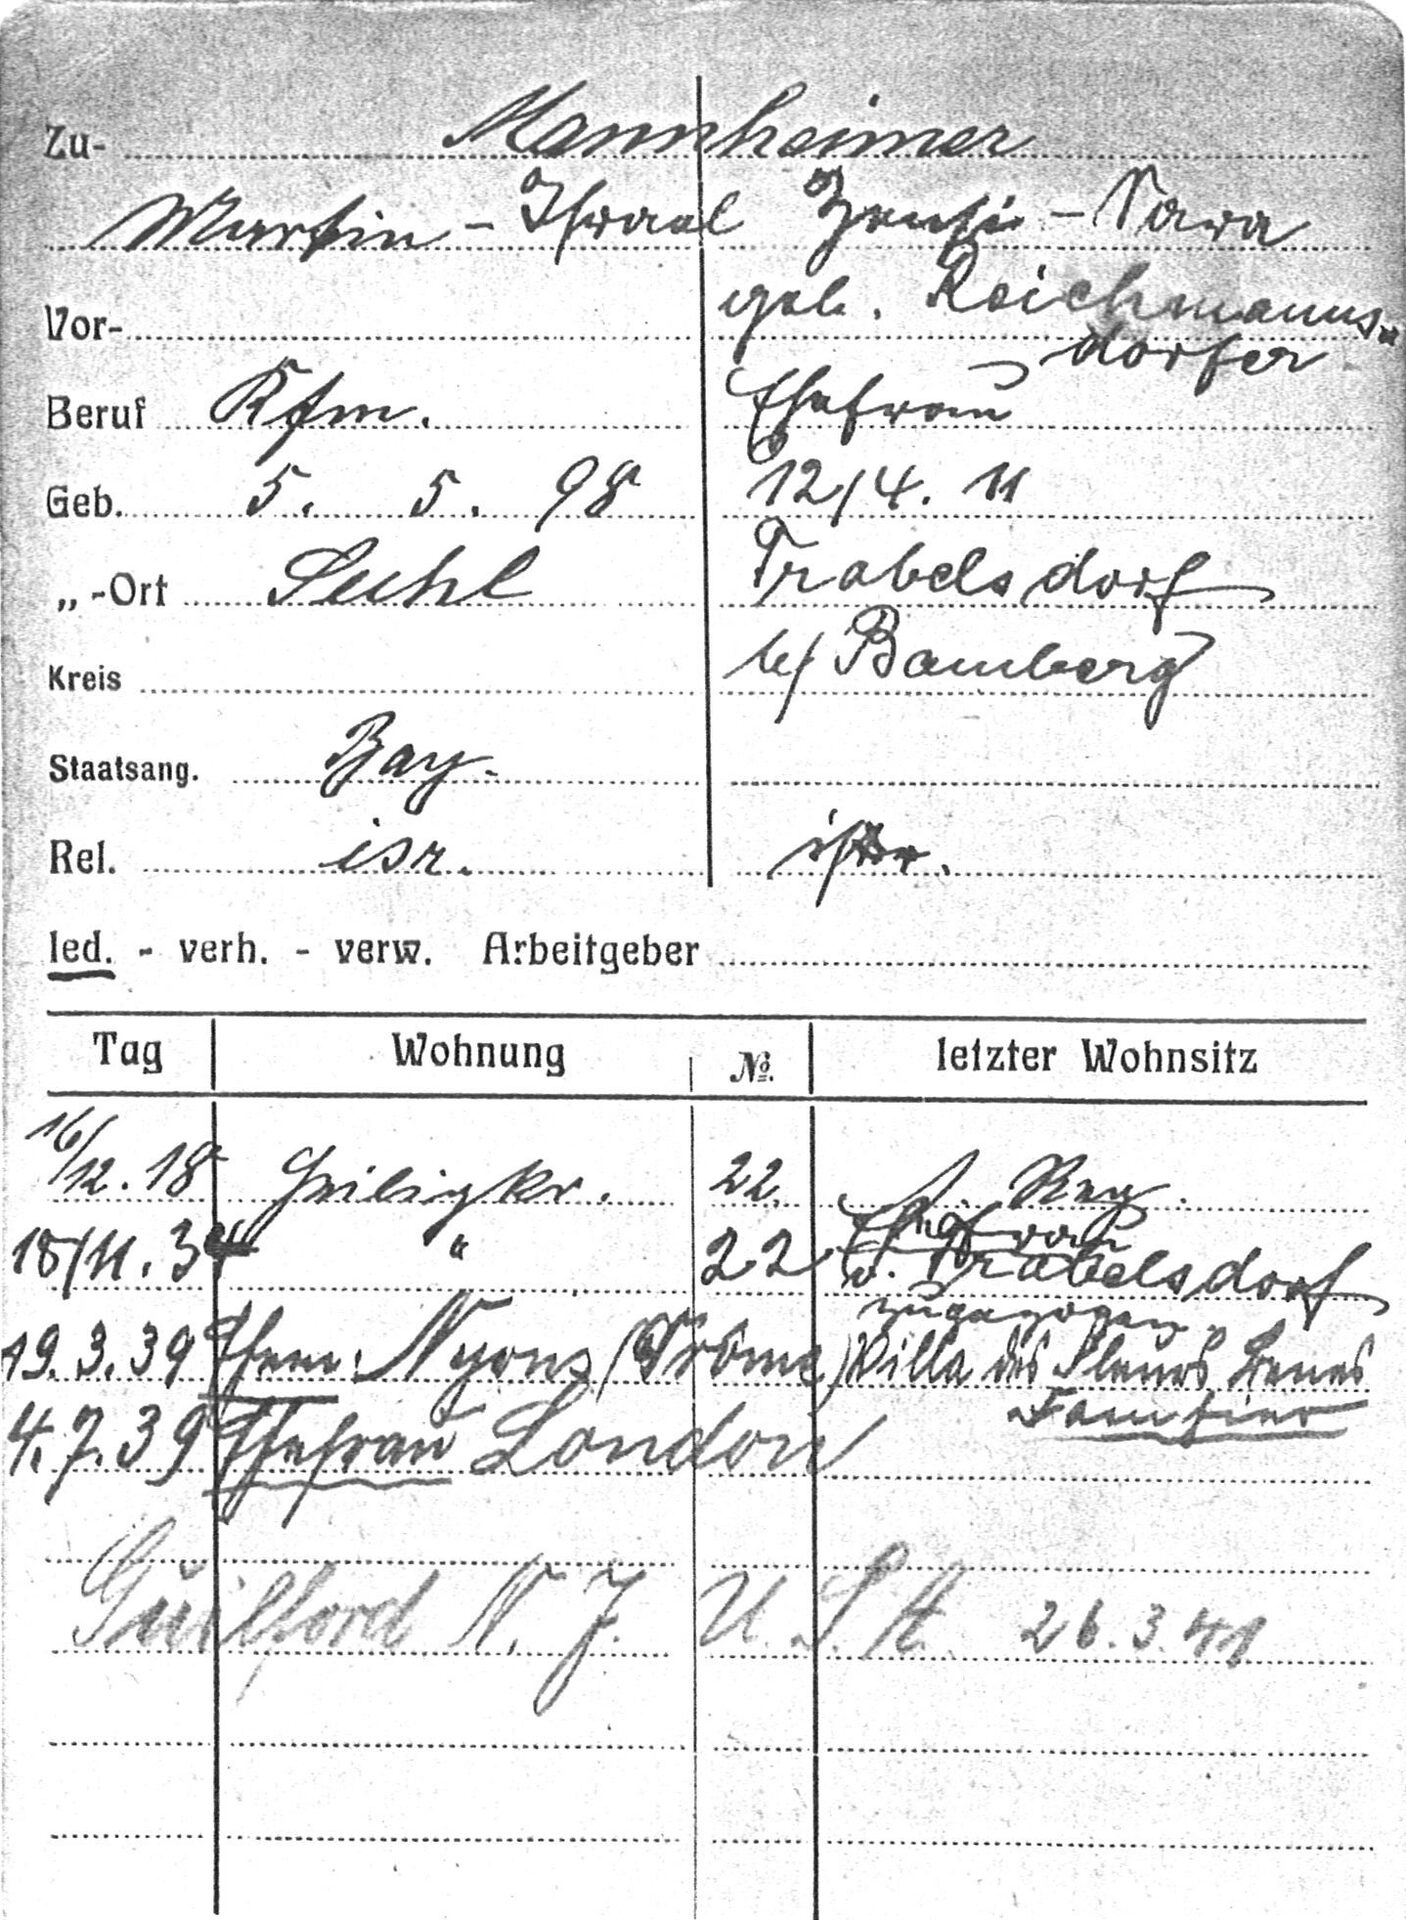 Zu- Mannheimer
Martin - Israel Senta - Sara
Vor- geb. Reichmanns-
dorfer
Beruf Kfm. Ehefrau
Geb. 5. 5. 98 12/4. 11
„ -Ort Suhl Trabelsdorf
Kreis b/ Bamberg
Staatsang. Bay.
Rel. isr. isr.
led. - verh. - verw. Arbeitgeber
Tag Wohnung No. letzter Wohnsitz
16/12. 18 Heiligkr. 22. Reg.
18/11. 34 " 22 Ehefrau
v. Trabelsdorf
zugezogen
19. 3. 39 Ehem. Nyons (Drôme) Villa des Fleurs
4. 7. 39 Ehefrau London
Guilford N. J. U. S. A. 26. 3. 41